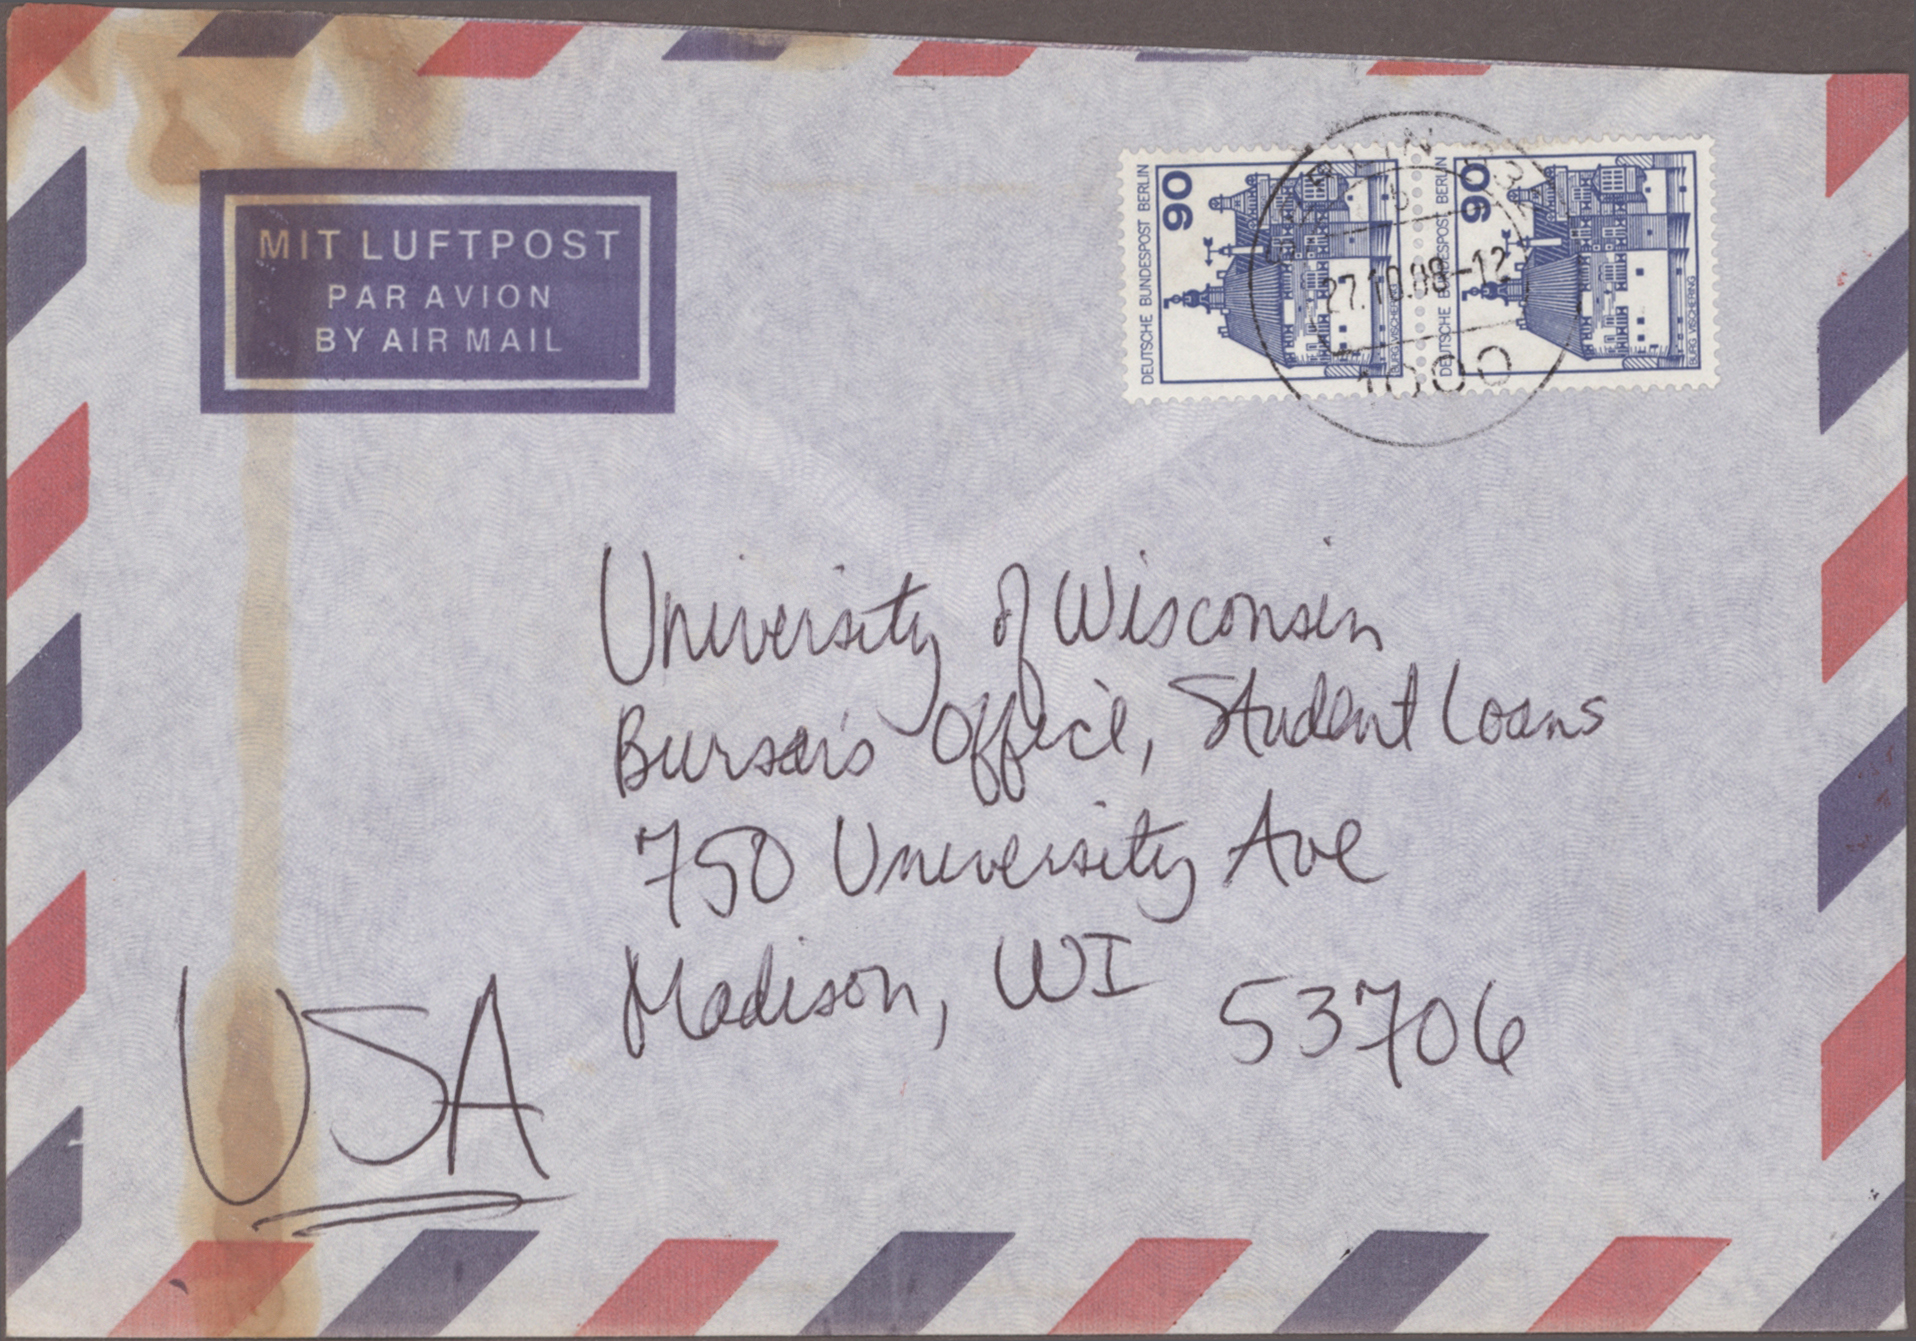 MIT LUFTPOST
PAR AVION
BY AIR MAIL
DEUTSCHE BUNDESPOST BERLIN
90
BURG VISCHERING
DEUTSCHE BUNDESPOST BERLIN
90
BURG VISCHERING
27.10.88-12
1000
University of Wisconsin
Bursar's Office, Student Loans
750 University Ave
Madison, WI 53706
USA